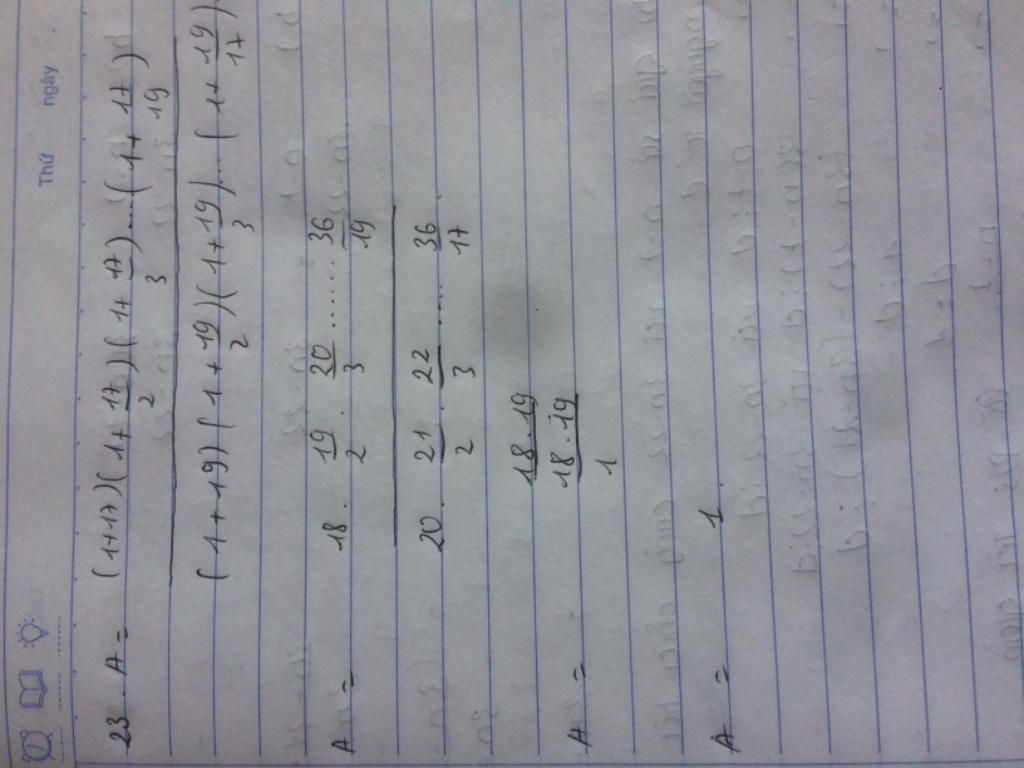 Thứ ngày
23. A = (1+17)(1+ 17/2)(1+ 17/3)...(1+ 17/19)
(1+19)(1+ 19/2)(1+ 19/3)...(1+ 19/17).
A = 18. 19/2 . 20/3 ...... 36/19
20. 21/2 . 22/3 .... 36/17 .
A = 18.19
18.19
1
A = 1.